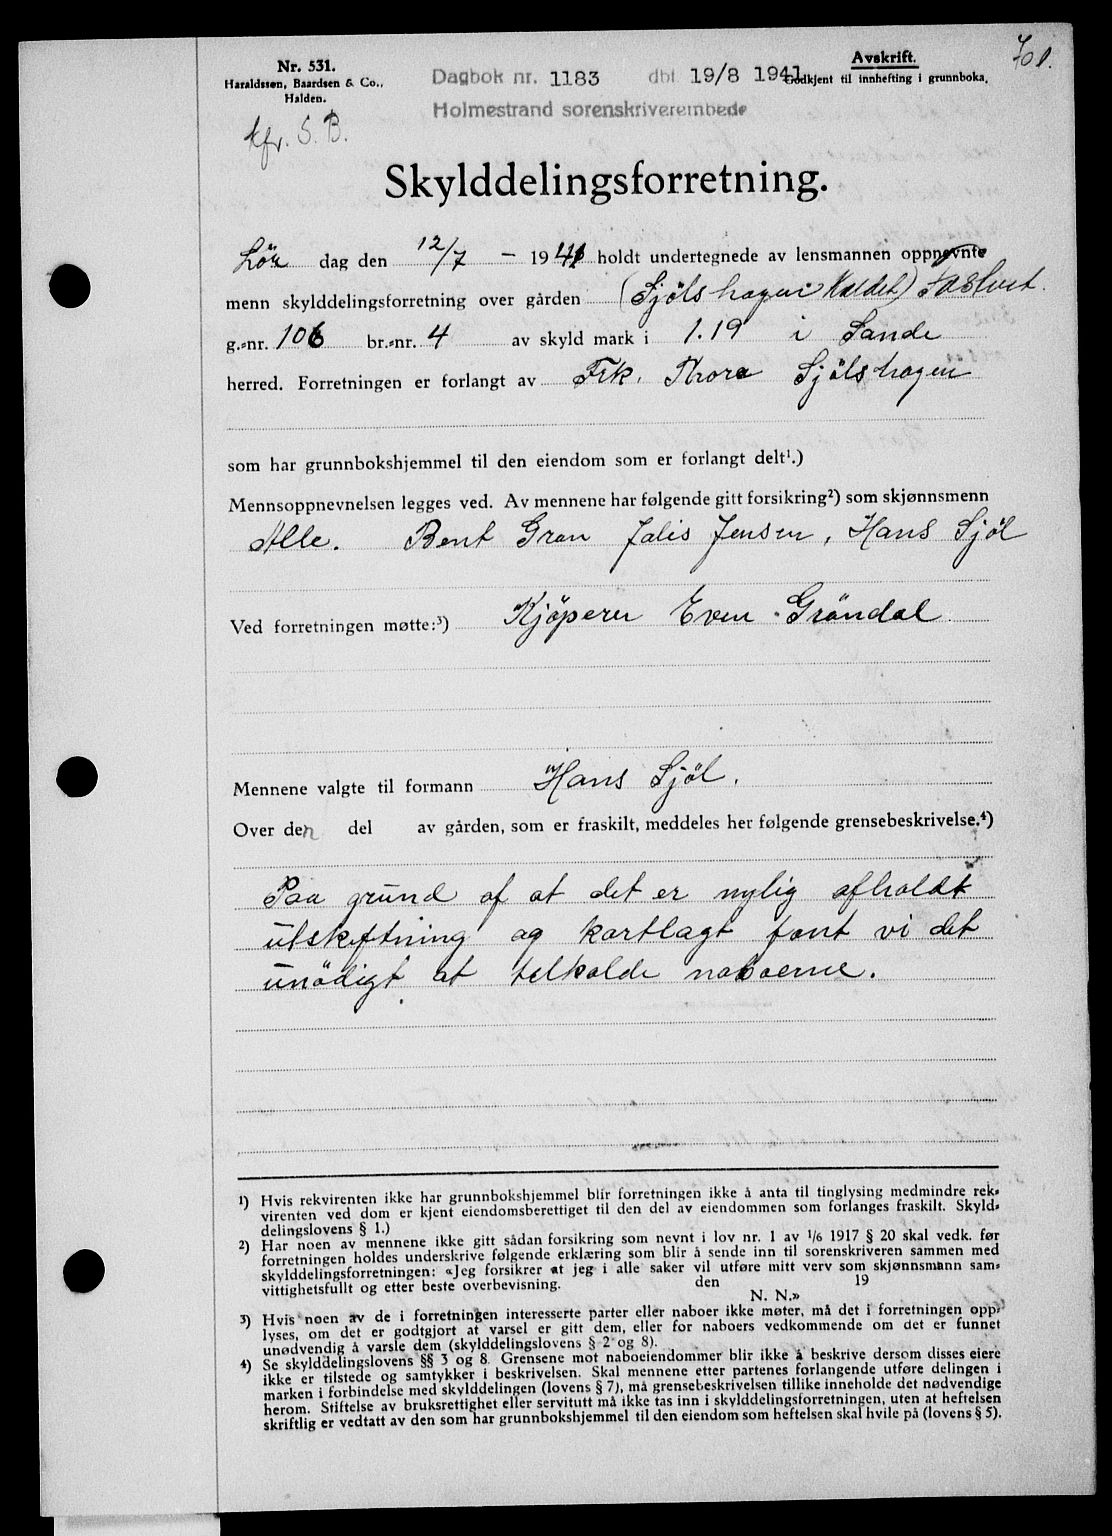 701.
Nr. 531.
Haraldssen, Baardsen & Co.,
Halden.
Dagbok nr. 1183 dbf 19/8 1941
Holmestrand sorenskriverembede
Avskrift.
Godkjent til innhefting i grunnboka.
kfr. S. B.
Skylddelingsforretning.
Lör dag den 12/7 - 1941 holdt undertegnede av lensmannen oppnevnte
menn skylddelingsforretning over gården (Sjölshagen kaldet)
g.-nr. 106 br.-nr. 4 av skyld mark i 1.19 i Sande
herred. Forretningen er forlangt av Frk. Thora Sjölshagen
som har grunnbokshjemmel til den eiendom som er forlangt delt¹.)
Mennsoppnevnelsen legges ved. Av mennene har følgende gitt forsikring²) som skjønnsmenn
Alle. Bent Gran Jensen, Hans Sjöl
Ved forretningen møtte:³) Kjöperen Even Gröndal
Mennene valgte til formann Hans Sjöl.
Over den del av gården, som er fraskilt, meddeles her følgende grensebeskrivelse.⁴)
Paa grund af at det er nylig afholdt
utskiftning og kartlagt fant vi det
unödigt at telkalde naboerne.
¹) Hvis rekvirenten ikke har grunnbokshjemmel blir forretningen ikke å anta til tinglysing medmindre rek-
virenten ved dom er kjent eiendomsberettiget til den del av eiendommen som forlanges fraskilt. Skyld-
delingslovens § 1.)
²) Har noen av mennene ikke gitt sådan forsikring som nevnt i lov nr. 1 av 1/6 1917 § 20 skal vedk. før
forretningen holdes underskrive følgende erklæring som blir å sende inn til sorenskriveren sammen med
skylddelingsforretningen: «Jeg forsikrer at jeg i alle saker vil utføre mitt verv som skjønnsmann sam-
vittighetsfullt og etter beste overbevisning. den 19
N. N.»
3) Hvis noen av de i forretningen interesserte parter eller naboer ikke møter, må det i forretningen opp-
lyses, om det er godtgjort at varsel er gitt dem, eller for naboers vedkommende om det er funnet
unødvendig å varsle dem (skylddelingslovens § 2 og 8).
4) Se skylddelingslovens §§ 3 og 8. Grensene mot naboeiendommer blir ikke å beskrive dersom disses eiere
ikke er tilstede og samtykker i beskrivelsen. Skal mennene etter partenes forlangende utføre delingen i
marken i forbindelse med skylddelingen (lovens § 7), må grensebeskrivelsen tillike inneholde det nødvendige
herom. Stiftelse av bruksrettighet eller servitutt må ikke tas inn i skylddelingsforretningen, uten at heftelsen
skriftlig er vedtatt av den som har grunnbokshjemmel til den eiendom som heftelsen skal hvile på (lovens § 5).